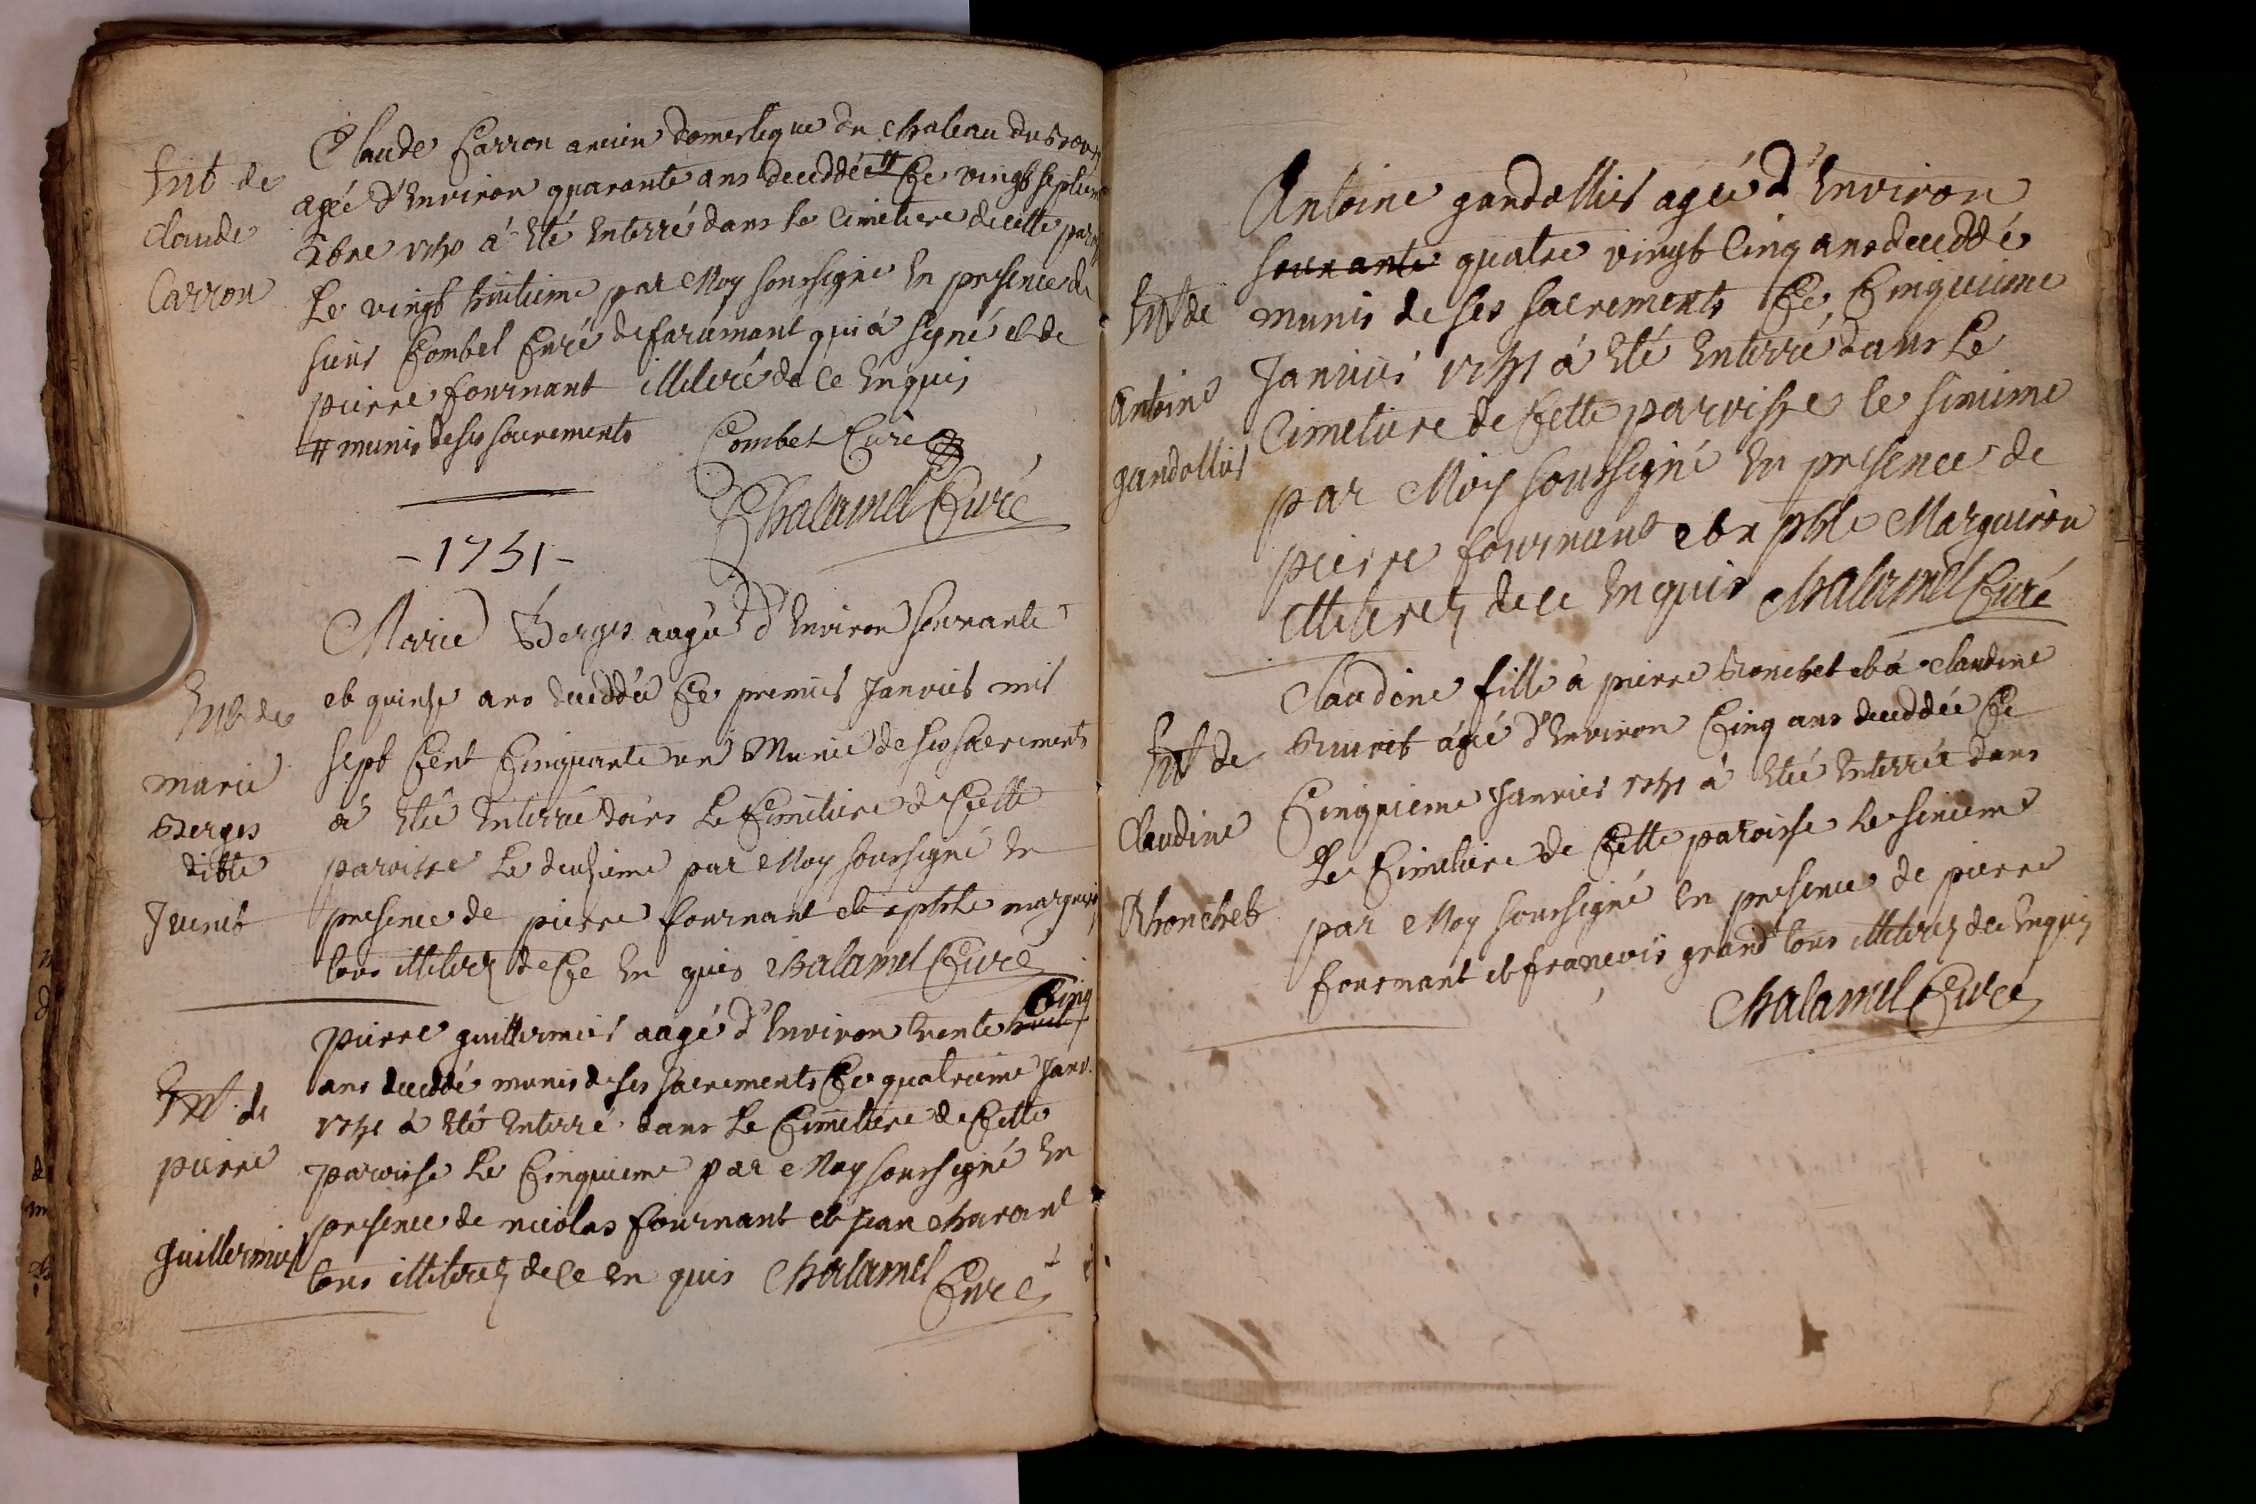 Ent de
Claude
Carron
Claude Carron ancien domestique du chateau du
agé d'Environ quarante ans deceddée # Ce vingt septieme
Xbre 1750 a Eté Enterré dans le Cimetiere de cette paroi
Le vingt huitieme par Moy soussigné En presence de
sieur Combet Curé de faramant qui à signé et de
pierre fournant illiteré de Ce Enquis
# munis de ses sacrements Combet Curé
Chalamel Curé
- 1751 -
Ent de
marie
Berges
ditte
Marie Berges aagée d'Environ soixante
et quinse ans deceddée Ce premier Janvier mil
sept Cent Cinquante un Munie de ses sacrements
à Eté Enterrée dans Le Cimetiere de Cette
paroisse Le deusieme par Moy soussigné En
presence de pierre fournant et
tous illiterez de Ce En quis Chalamel Curé
Ent de
pierre
guillermier
Cinq
pierre guillermier aagé d'Environ trente huit
ans deceddé munis de ses sacrements Ce quatrieme Janv.
1751 à Eté Enterré dans Le Cimettiere de Cette
paroisse Le Cinquieme par Moy soussigné En
presence de nicolas fournant et Jean charant
tous illiterez de Ce En quis Chalamel
Curé
Ent de
Antoine
gandollier
Antoine gandollier agée d'Environ
soixante quatre vingt Cinq ans deceddé
munis de ses sacrements Ce Cinquieme
Janvier 1751 à Eté Enterré dans Le
Cimetiere de Cette paroisse le sixieme
par Moy soussigné En presence de
pierre fournant et Marguiron
illiterez de ce Enquis Chalamel Curé
Ent de
Claudine
Rhonchet
Claudine fille à pierre Ronchet et à Claudine
agée d'Environ Cinq ans deceddée Ce
Cinquieme Janvier 1751 à Eté Enterrée dans
Le Cimetiere de Cette paroisse Le sixieme
par Moy soussigné En presence de pierre
fournant et francois grand tous illiterez de ce Enquis
Chalamel Curé